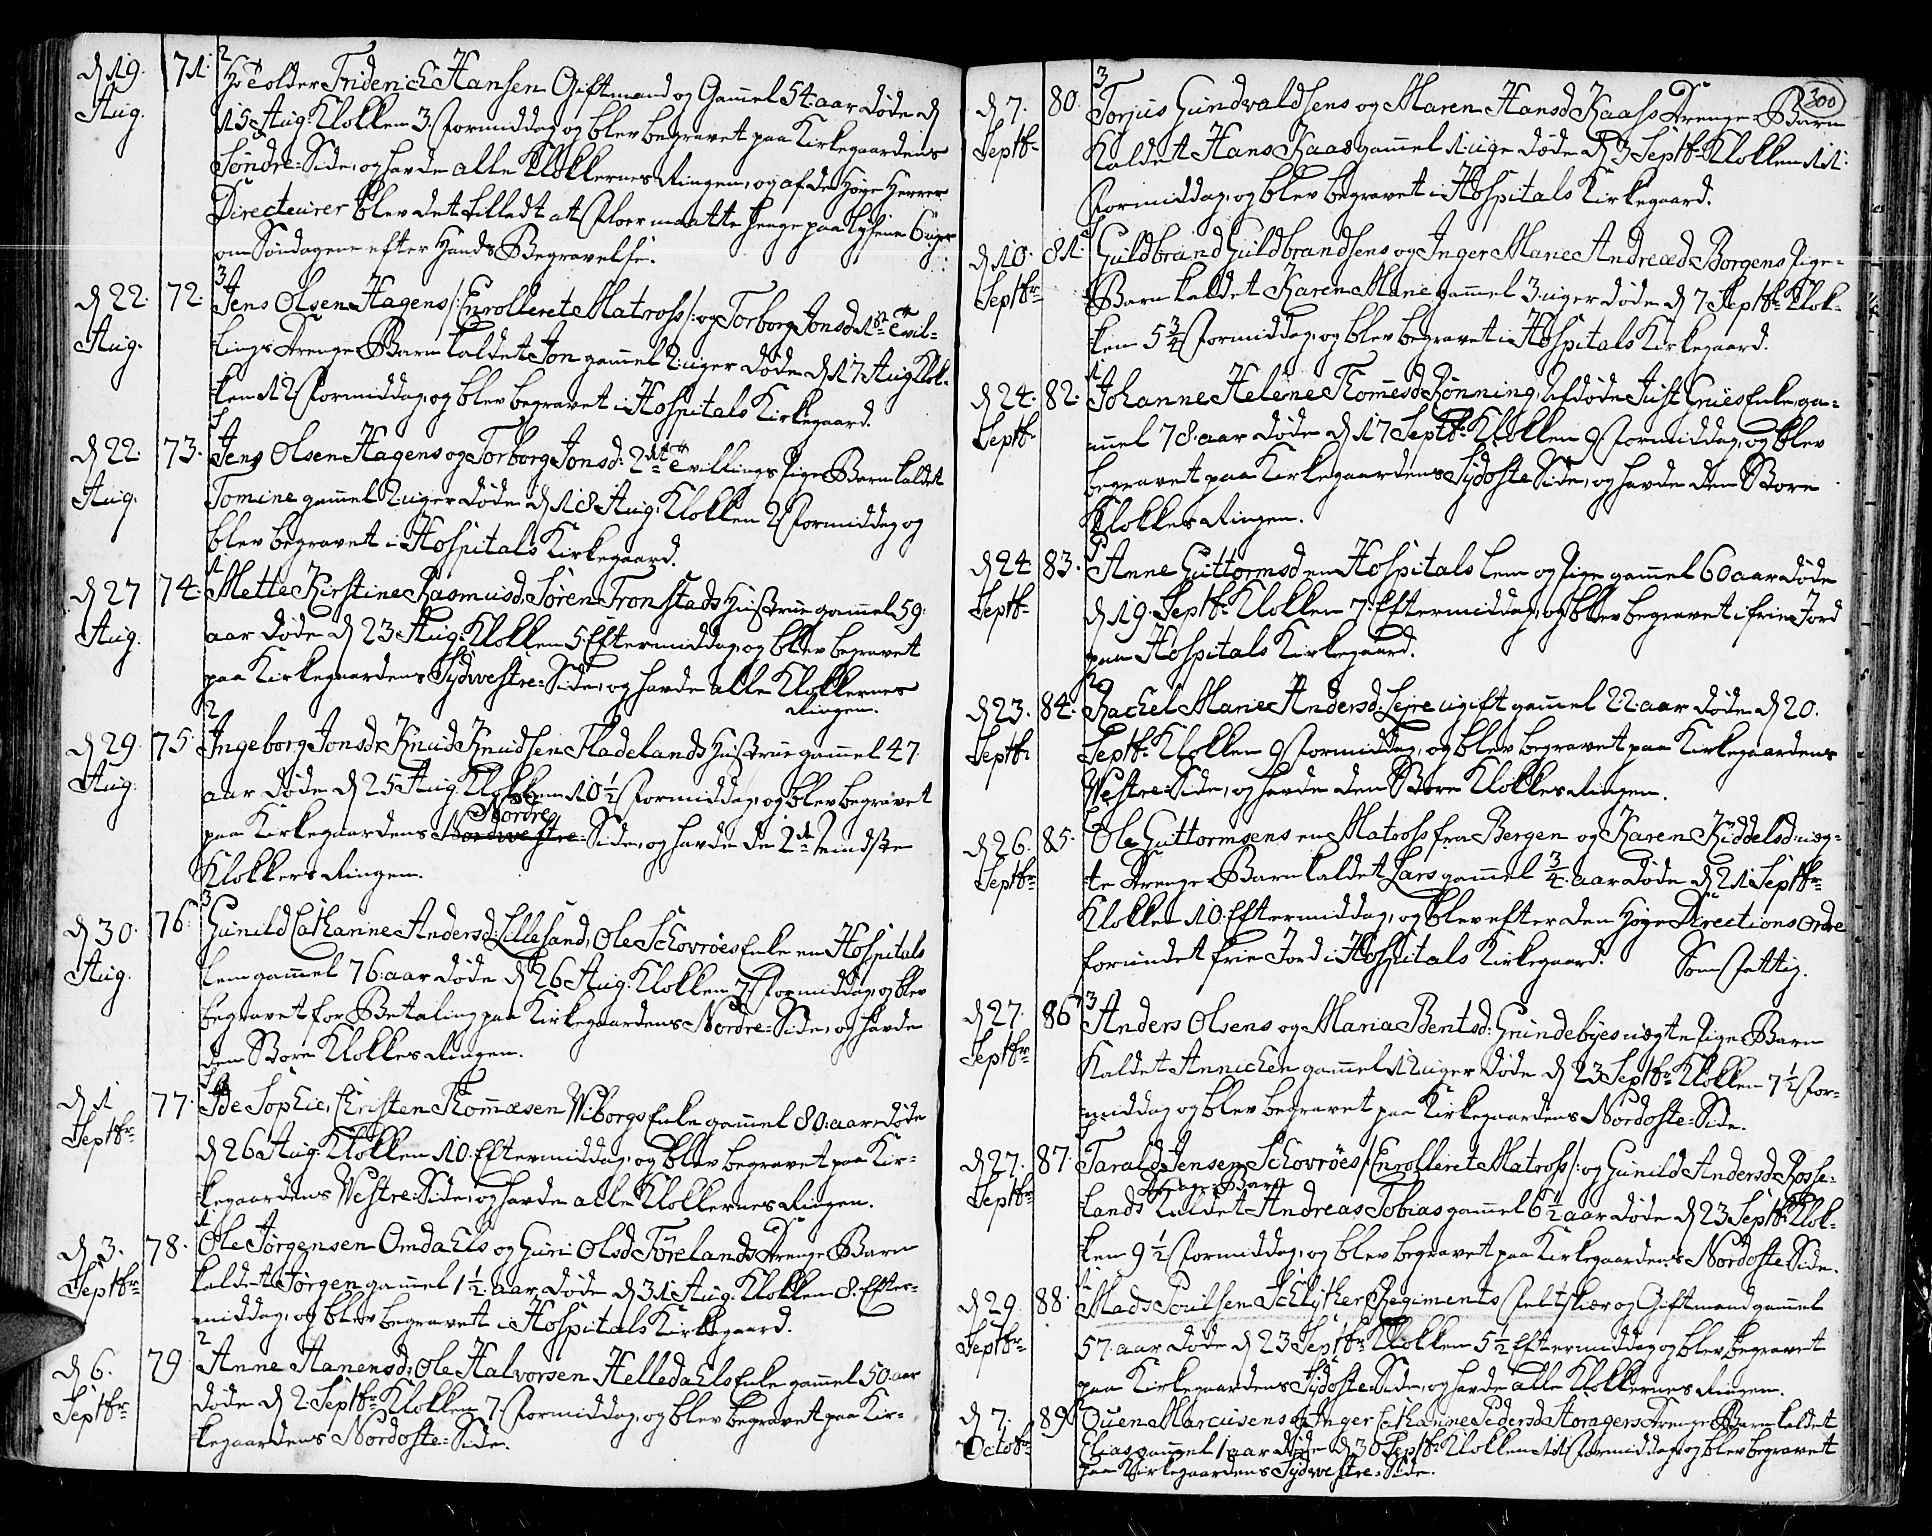 d 19. Aug. 71. 2 Hr Tolder Friderich Hansen Giftmand og Gamel 54 aar døde d
15 Aug: Klokken 3. Formiddag og blev begravet paa Kirkegaardens
Søndre-Side, og havde alle Klokkernes Ringen, og af de Høye Herrer
Directeurer blev det tilladt at Floer maatte henge paa Lysene 6 uger
om Søndagene efter Hands Begravelse.
d 22. Aug. 72. 3 Jens Olsen Hagens /: Enrolleret Matross :/ og Torborg Jonsd 1ste Tvil-
lings Drenge Barn kaldet Jon gamel 2 uger døde d 17 Aug Klok-
ken 12 Formiddag, og blev begravet i Hospitals Kirkegaard.
d 22. Aug. 73. Jens Olsen Hagens og Torborg Jonsd: 2det Tvillings Pige Barn kaldet
Tomine gamel 2 uger døde d 18 Aug: Klokken 2 Formiddag og
blev begravet i Hospitals Kirkegaard.
d 27 Aug. 74. 1 Mette Kirstine Rasmusd, Søren Tronstads Hustrue gamel 59
aar døde d 23 Aug: Klokken 5 Eftermiddag, og blev begravet
paa Kirkegaardens Sydwestre-Side, og havde alle Klokkernes
Ringen.
d 29. Aug. 75. 2 Ingeborg Jonsd: Knud Knudsen Fladelands Hustrue gamel 47
aar døde d 25 Aug: Klokken 10½ Formiddag, og blev begravet
Nordre
paa Kirkegaardens Nordwestre-Side, og havde de 2de mindste
Klokkers Ringen.
d 30. Aug. 76. 3 Gunild Catharine Andersd: Lillesand, Ole Schovröes Enke en Hospitals
Lem gamel 76 aar døde d 26 Aug: Klokken 7 Formiddag, og blev
begravet for Betaling paa Kirkegaardens Nordre-Side, og havde
den Store Klokkes Ringen.
d 1 Septbr. 77. Ide Sophie, Christen Thomæsen Wiborgs Enke gamel 80 aar døde
d 26 Aug: Klokken 10. Eftermiddag, og blev begravet paa Kir-
kegaardens Westre-Side, og havde alle Klokkernes Ringen.
d 3. Septbr. 78. 1 Ole Jørgensen Omdahls og Guri Olsd Förelands Drenge Barn
kaldet Jørgen gamel 1½ aar døde d 31 Aug: Klokken 8. Efter-
middag, og blev begravet i Hospitals Kirkegaard.
d 6. Septbr. 79 2 Anne Hanensd: Ole Halvorsen Helledahls Enke gamel 50 aar
døde d 2. Septbr. Klokken 7 Formiddag, og blev begravet paa Kir-
kegaardens Nordoste-Side.
300
d 7. Septbr. 80. 3 Torjus Gundvaldsens og Maren Hansd Kaass Drenge Barn
kaldet Hans Kaas gamel 1 uge døde d 3 Septbr. Klokken 11
Formiddag, og blev begravet i Hospitals Kirkegaard.
d 10. Septbr. 81. Guldbrand Guldbrandsens og Inger Marie Andreæd. Borgens Pige-
Barn kaldet Karen Marie gamel 3 uger døde d 7 Septbr. Klok-
ken 5¾ Formiddag, og blev begravet i Hospitals Kirkegaard.
d 24. Septbr. 82. 1 Johanne Helene Thomesd Rønning, Afdøde Just Gries Enke, ga-
mel 78 aar døde d 17 Septbr. Klokken 9. Formiddag, og blev
begravet paa Kirkegaardens Sydoste Side, og havde den Store
Klokkes Ringen.
d 24 Septbr. 83. Anne Guttormsd en Hospitals Lem og Pige gamel 60 aar døde
d 19. Septbr. Klokken 7. Eftermiddag, og blev begravet i frie Jord
paa Hospitals Kirkegaard.
d 23. Septbr. 84. 2 Rachel Marie Andersd: Leire ugift gamel 22 aar døde d 20.
Septbr. Klokken 9 Formiddag, og blev begravet paa Kirkegaardens
Westre-Side, og havde den Store Klokkes Ringen.
d 26. Septbr. 85. Ole Guttormsens en Matross fra Bergen og Karen Kiddelsd: uæg-
te Drenge Barn kaldet Lars gamel ¾ aar døde d 21 Septbr.
Klokken 10. Eftermiddag, og blev efter den Høye Directions Ordre
forundet frie Jord i Hospitals Kirkegaard. Som fattig.
d 27. Septbr. 86 3 Anders Olsens og Maria Bentsd: Grundebyes uægte Pige Barn
kaldet Annichen gamel 12 uger døde d 23 Septbr. Klokken 7½ For-
middag og blev begravet paa Kirkegaardens Nordoste-Side.
d 27. Septbr. 87. Tarald Jensen Schovröes /: Enrolleret Matross :/ og Gunild Andersd Rosse-
Drenge Barn
lands kaldet Andreas Tobias gamel 6½ aar døde d 23 Septbr. Klok-
ken 9½ Formiddag, og blev begravet paa Kirkegaardens Nordoste Side.
d 29. Septbr. 88. 1 Mads Poulsen Schlyther Regiments Feltskiær og Giftmand gamel
57 aar døde d 23 Septbr. Klokken 5½ Eftermiddag og blev begravet
paa Kirkegaardens Sydoste-Side, og havde alle Klokkernes Ringen.
d 7. Octobr. 89. 2 Ouen Marcusens og Inger Cathanne Pedersd Storagers Drenge Barn kaldet
Elias gamel 1 aar døde d 30 Septbr. Klokken 11 Formiddag, og blev begravet
paa Kirkegaardens Sydwestre-Side.